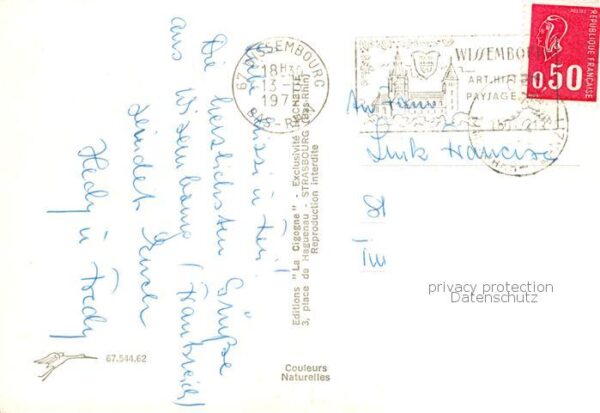 Liebe Sissi u Feri!
Die herzlichsten Grüße
aus Wissembourg (Frankreich)
sendet Euch
Hedy u Fredy
Editions "La Cigogne" - Exclusivité
3, place de Haguenau - STRASBOURG (Bas-Rhin)
Reproduction interdite
67.544.62
Couleurs
Naturelles
67 WISSEMBOURG
18H
13
197
BAS-RHIN
WISSEMBOURG
ART.HIST
PAYSAGE
REPUBLIQUE FRANÇAISE
0,50
An Frau
Link Francise
privacy protection
Datenschutz